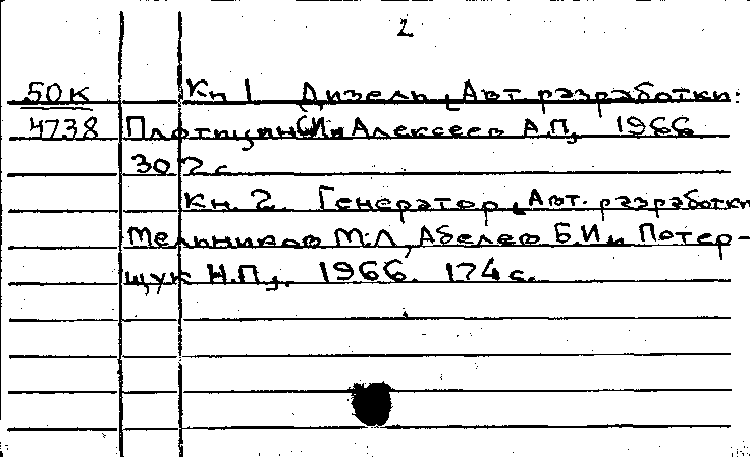 2
50К Кн 1 Дизель, [Авт разработки:
4738 Плотицин С.И и Алексеев А.П., 1966
302 с
Кн. 2. Генератор, [Авт. разработки
Мельников М.Л, Абелев Б.И и Потер-
щук Н.П.,. 1966. 174 с.